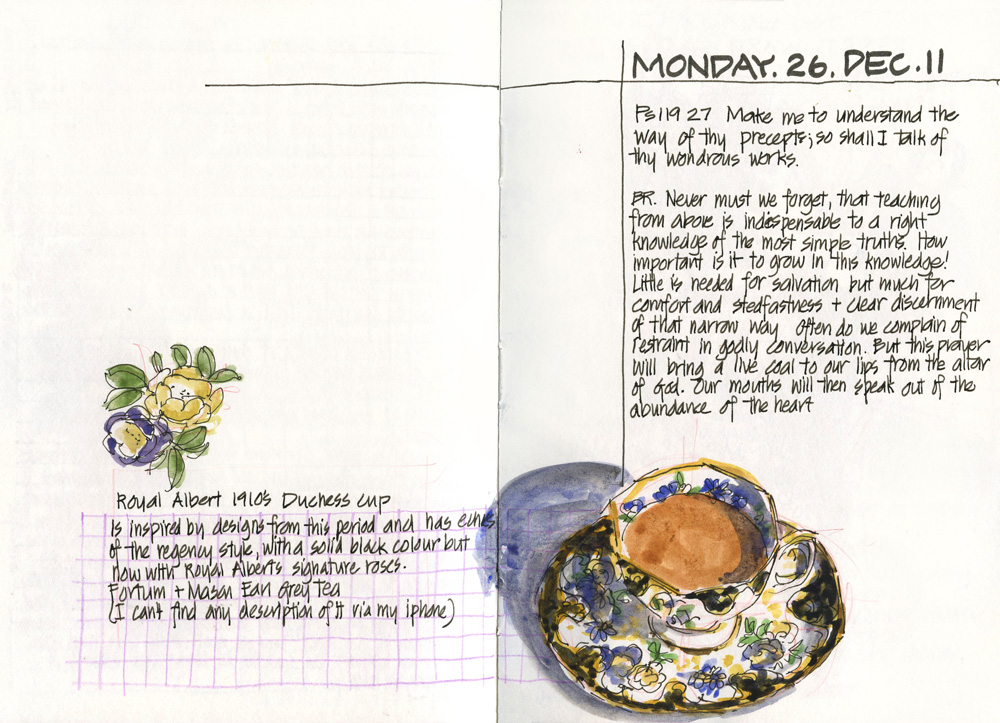 Royal Albert 1910s Duchess Cup
is inspired by designs from this period and has echos
of the regency style, with a solid black colour but
now with Royal Alberts signature roses.
Fortum + Mason Earl Grey Tea
(I cant find any description of it via my iphone)
MONDAY. 26. DEC. 11
Ps119 27 Make me to understand the
way of thy precepts; so shall I talk of
thy wondrous works.
BR. Never must we forget, that teaching
from above is indespensable to a right
knowledge of the most simple truths. How
important is it to grow in this knowledge!
Little is needed for salvation but much for
comfort and stedfastness + clear discernment
of that narrow way often do we complain of
restraint in godly conversation. But this prayer
will bring a live coal to our lips from the altar
of God. Our mouths will then speak out of the
abundance of the heart